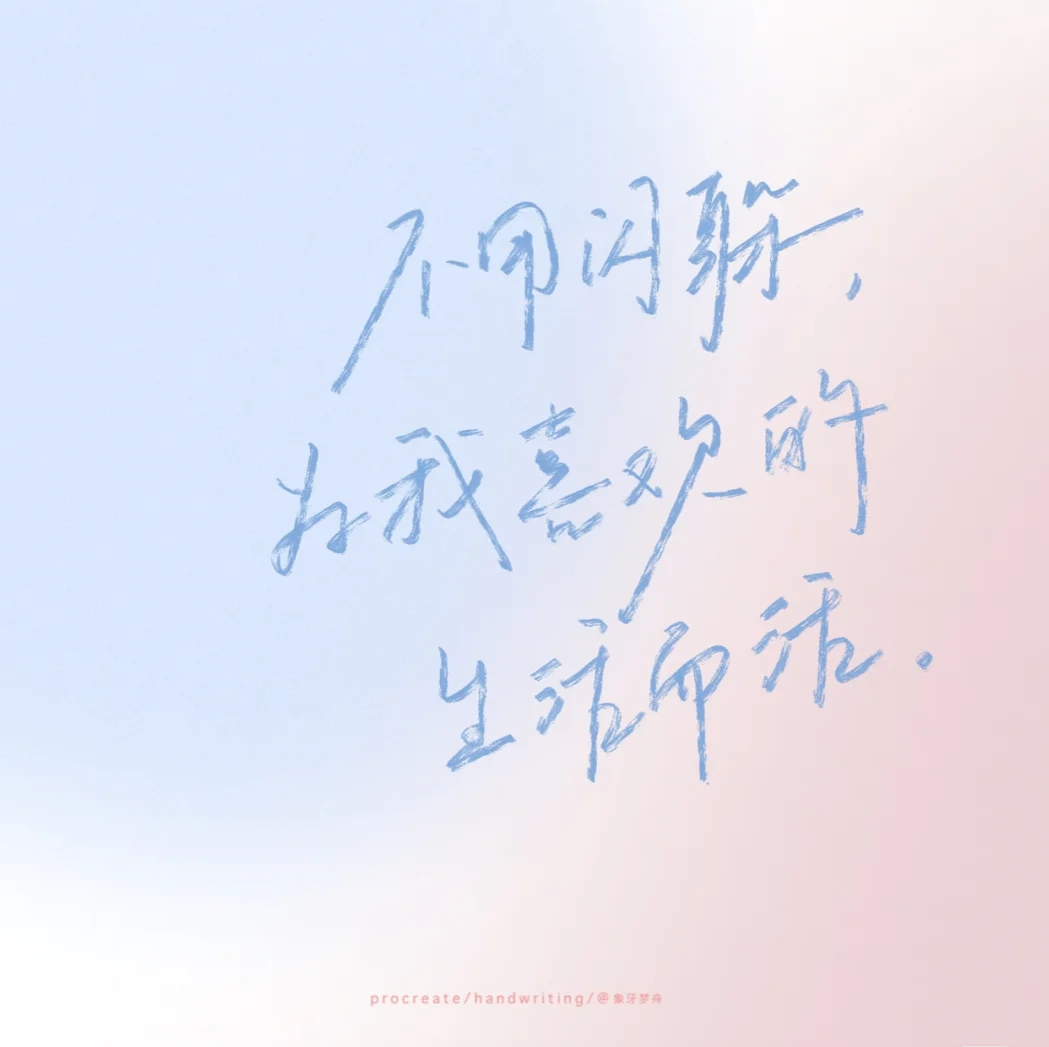 不用闪躲，
为我喜欢的
生活而活．
procreate/handwriting/@象牙梦舟